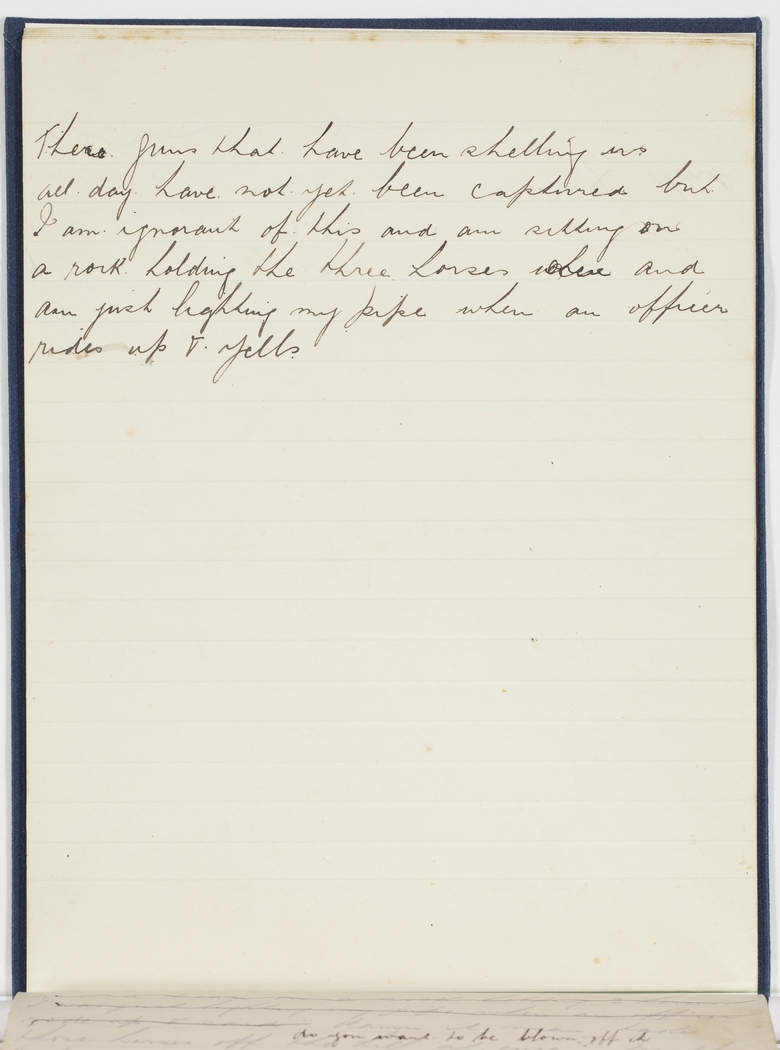 These guns that have been shelling us
all day have not yet been captured but
I am ignorant of this and am sitting on
a rock holding the three horses and
am just lighting my pipe when an officer
rides up & yells
do you want to be blown off it
those horses off